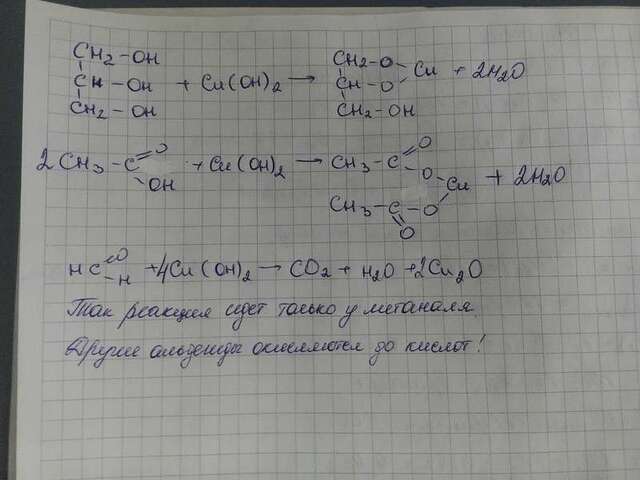 CH2 – OH CH2 – O
CH – OH + Cu(OH)2 → CH – O Cu + 2H2O
CH2 – OH CH2 – OH
2CH3 – C O OH + Cu(OH)2 → CH3 – C O O Cu + 2H2O
CH3 – C – O O
HC O – H + 4Cu(OH)2 → CO2 + H2O + 2Cu2O
Так реакция идет только у метаналя.
Другие альдегиды окисляются до кислот!